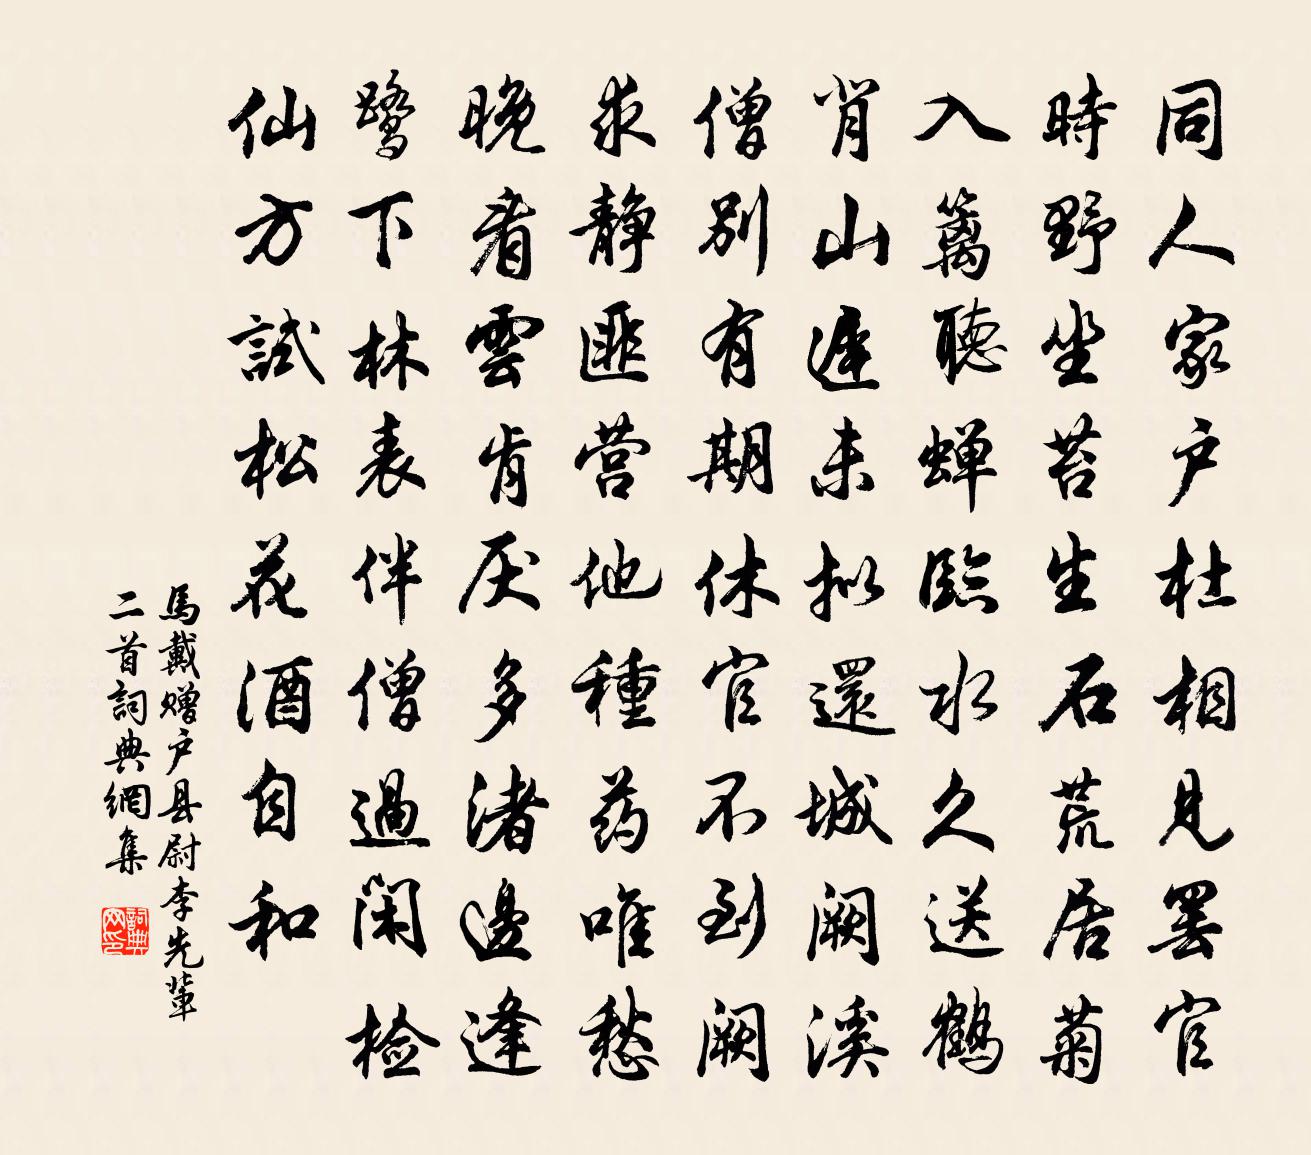 同人家户杜相見罢官
時野坐苔生石荒居菊
入篱聽蝉臨水久送鶴
背山遲未拟還城阙溪
僧别有期休官不到阙
求靜匪营他種药唯愁
晚看雲肯厌多渚邊逢
鹭下林表伴僧過闲检
仙方試松花酒自和
馬戴赠户县尉李先輩
二首詞典網集
詞典
网印